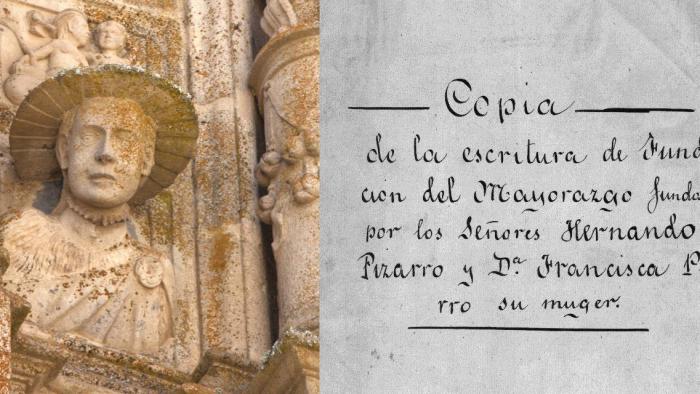 Copia
de la escritura de Fund
cion del Mayorazgo funda
por los Señores Hernando
Pizarro y Dª Francisca P
rro su muger.